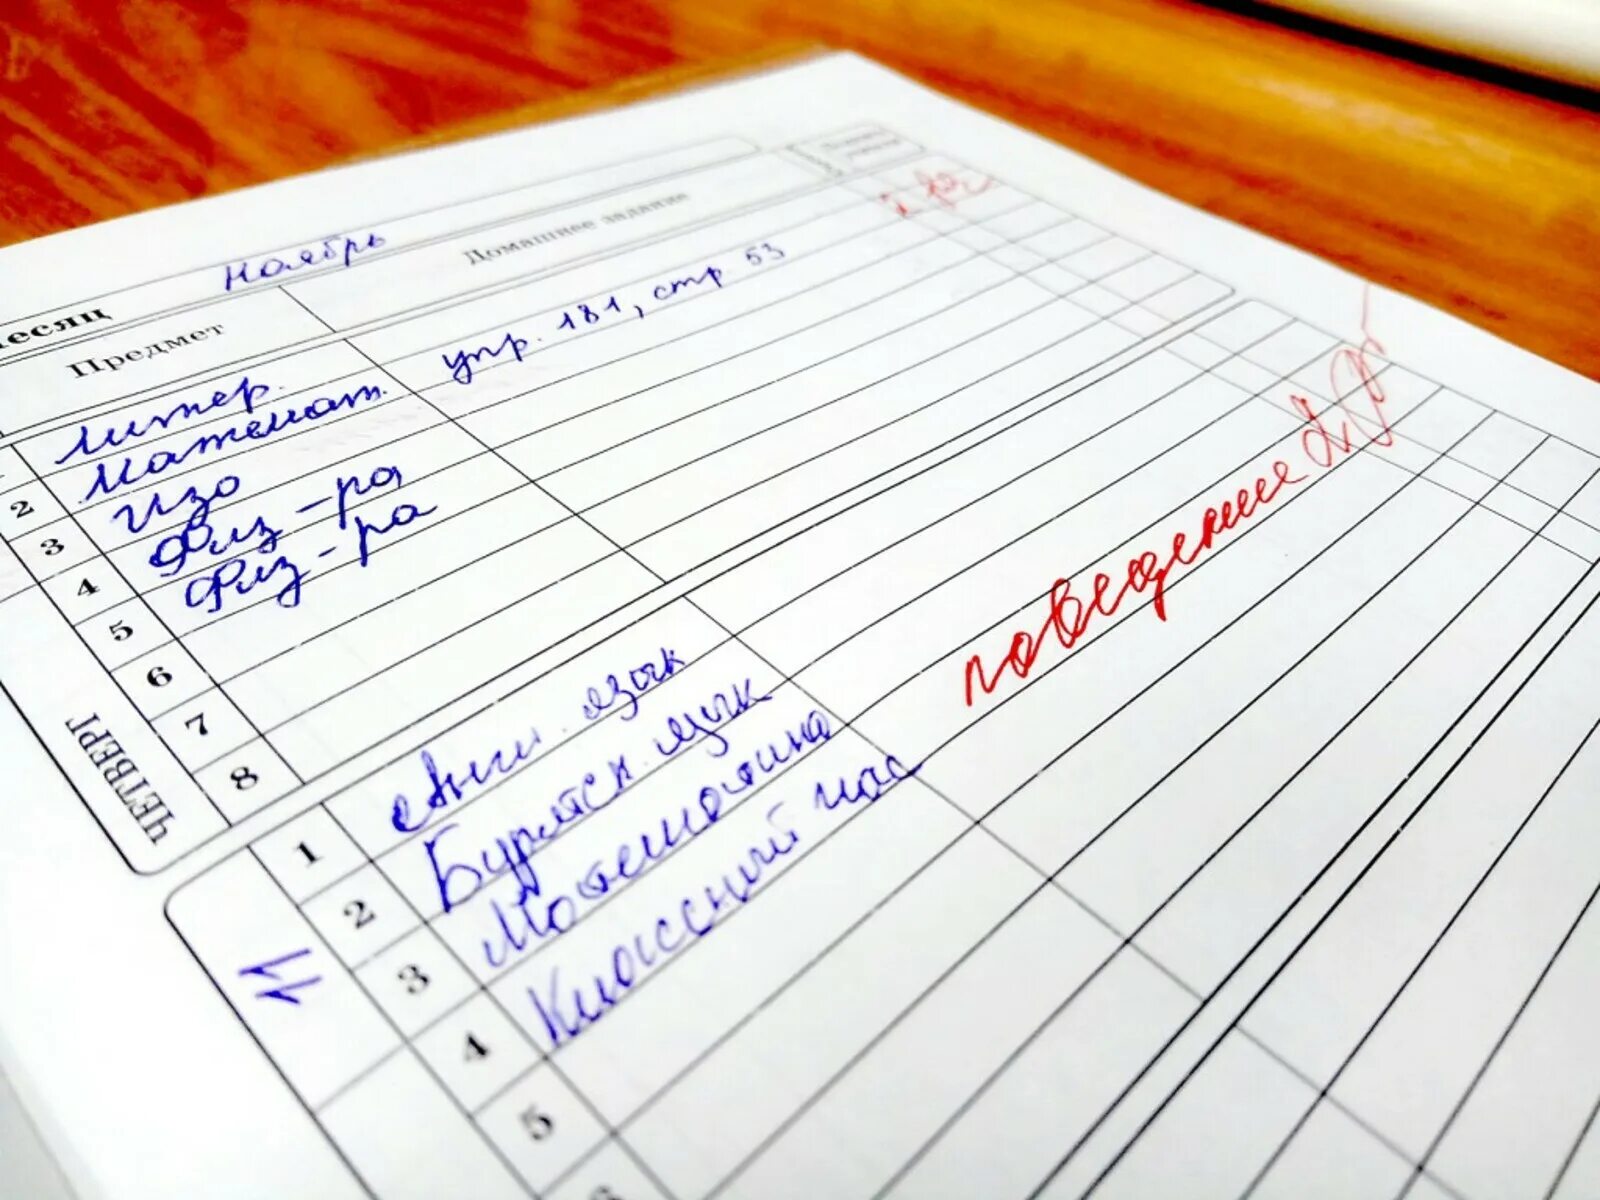 месяц ноябрь
Предмет Домашнее задание
литер.
2 математ. упр. 181, стр. 53
3 изо
4 Физ-ра
5 Физ-ра
6
7
8
ЧЕТВЕРГ
1 Англ. язык
2 Бурятск. язык поведение 2
3 Математика
4 Классный час
5
11